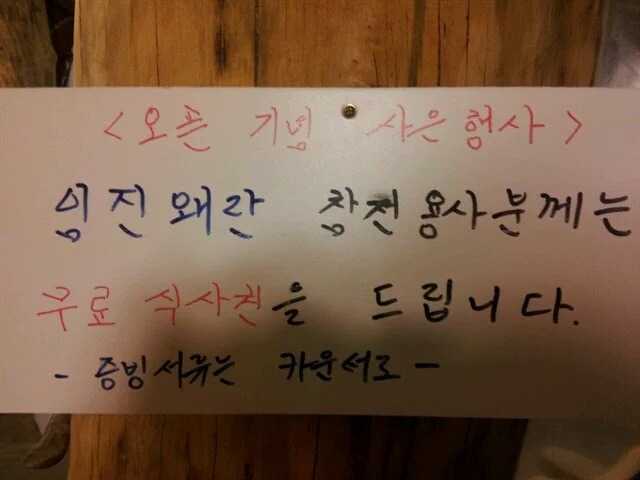 <오픈 기념 사은 행사>
임진왜란 참전용사분께는
무료 식사권을 드립니다.
- 증빙서류는 카운서로 -